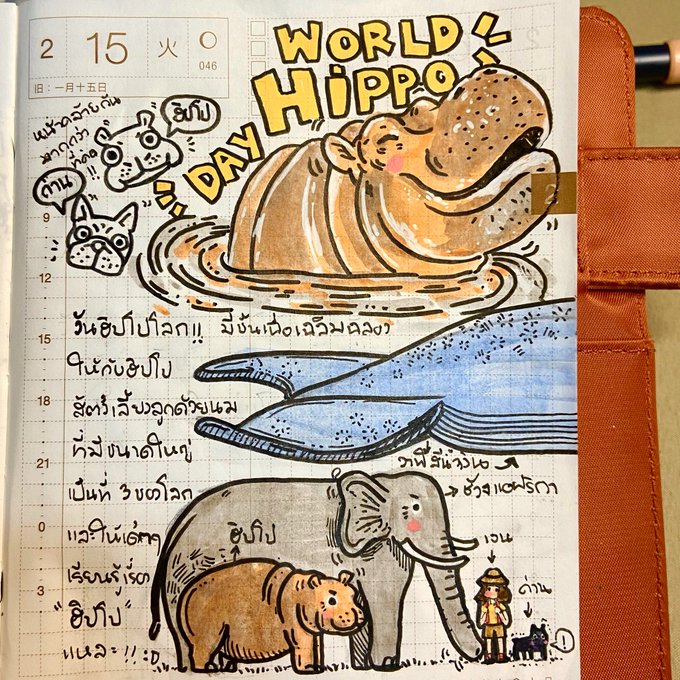 2 15 火
046
旧：一月十五日
WORLD
HIPPO
DAY
หน้าคล้ายกัน
มากกว่า
!!
ฮิปโป
ถ่าน
9
12
15
18
21
0
3
วันฮิปโปโลก!! มีขึ้นเพื่อเฉลิมฉลอง
ให้กับฮิปโป
สัตว์เลี้ยงลูกด้วยนม
ที่มีขนาดใหญ่
เป็นที่ 3 ของโลก
และให้เด็กๆ
เรียนรู้เรื่อง
"ฮิปโป"
แหละ!! :D
วาฬสีน้ำเงิน
ช้างแอฟริกา
ฮิปโป
เจน
ถ่าน
!